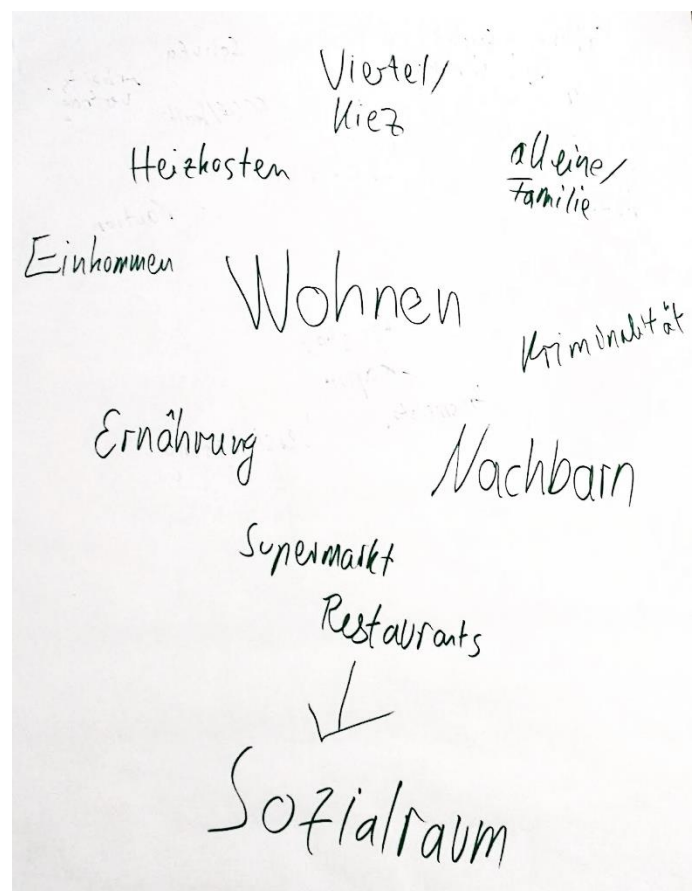 Viertel/
Kiez
Heizkosten
alleine/
Familie
Einkommen
Wohnen
Kriminalität
Ernährung
Nachbarn
Supermarkt
Restaurants
Sozialraum